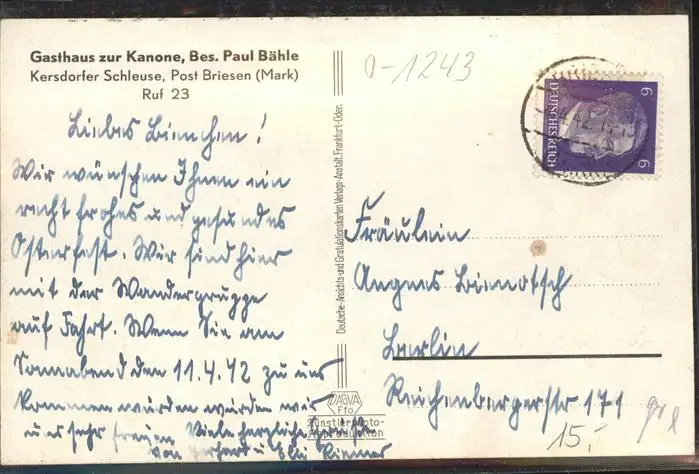 Gasthaus zur Kanone, Bes. Paul Bähle
Kersdorfer Schleuse, Post Briesen (Mark)
Ruf 23
Liebes Bienchen!
Wir wünschen Ihnen ein
recht frohes und gesundes
Osterfest. Wir sind hier
mit der Wandergruppe
auf Fahrt. Wenn Sie am
Sonnabend den 11.4.42 zu uns
kommen würden würden wir
uns sehr freuen Viele herzliche Grüße
von Gerhard u. Elli
Deutsche Ansichts- und Gratulationskarten Verlags-Anstalt, Frankfurt-Oder.
DAGVA
Ffo
Künstlerphoto-
Reproduktion
a-1243
DEUTSCHES REICH
6
6
4.42
Fräulein
Agnes
Berlin
Reichenbergerstr 171
15,-